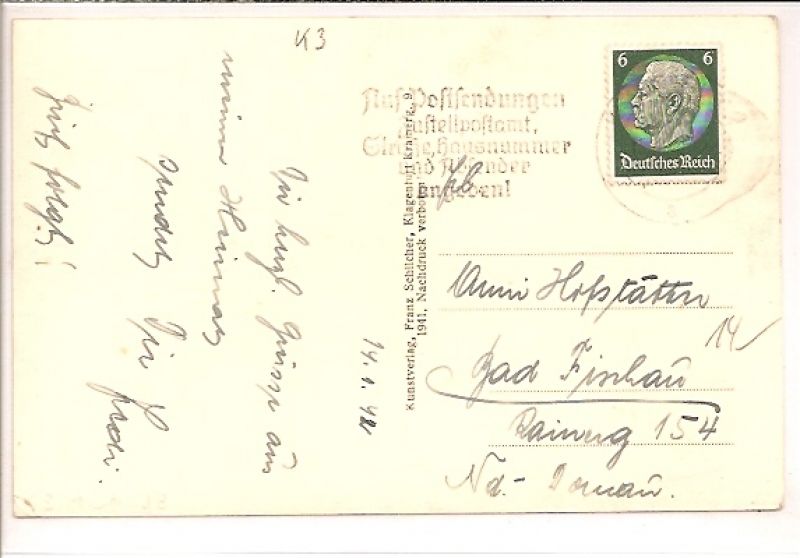 K3
14.1.42
Die herzl. Grüsse aus
meiner Heimat
sendet
Dir
Brief folgt!
Kunstverlag, Franz Schilcher, Klagenfurt Kramerg. 9
1941. Nachdruck verboten
Auf Postsendungen
Zustellpostamt,
Straße, Hausnummer
und Absender
angeben!
6 6
Deutsches Reich
Anni Hofstätter
14
Bad Fischau
Rainerg 154
Nd. - Donau.